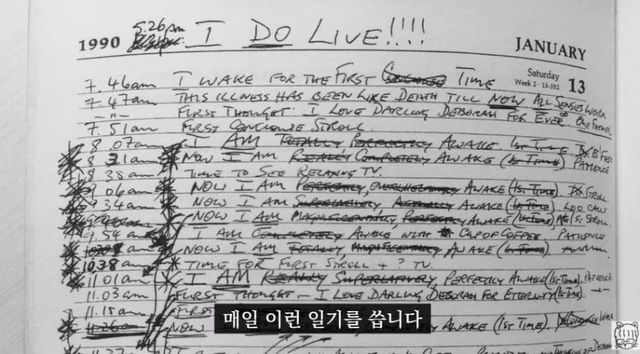 5.26pm
I DO LIVE!!!!
1990 JANUARY
Saturday 13
Week 2 · 13-352
7.46am I WAKE FOR THE FIRST TIME
7.47am THIS ILLNESS HAS BEEN LIKE DEATH TILL NOW ALL SENSES WORK
FIRST THOUGHT I LOVE DARLING DEBORAH FOR EVER
7.51am FIRST CONCLUSIVE STROLL
8.07am I AM TOTALLY PERFECTLY AWAKE (1st TIME)
8.31am NOW I AM REALLY COMPLETELY AWAKE (1st TIME) PATIENCE
8.35am TIME TO SEE RELAXING TV
9.06am NOW I AM PERFECTLY OVERWHELMINGLY AWAKE (1st TIME) STROLL
9.34am NOW I AM SUPERLATIVELY ACTUALLY AWAKE (1st TIME)
NOW I AM AWAKE (1st TIME) STROLL
9.54am I AM COMPLETELY AWAKE WITH CUP OF COFFEE PATIENCE
NOW I AM TOTALLY AWAKE (1st TIME)
10.38am TIME FOR FIRST STROLL + ? TV
11.01am I AM REALLY SUPERLATIVELY PERFECTLY AWAKE (1st TIME) PATIENCE
11.03am FIRST THOUGHT – I LOVE DARLING DEBORAH FOR ETERNITY (1st TIME)
11.15am FIRST
11.26am NOW AWAKE (1st TIME)
매일 이런 일기를 씁니다